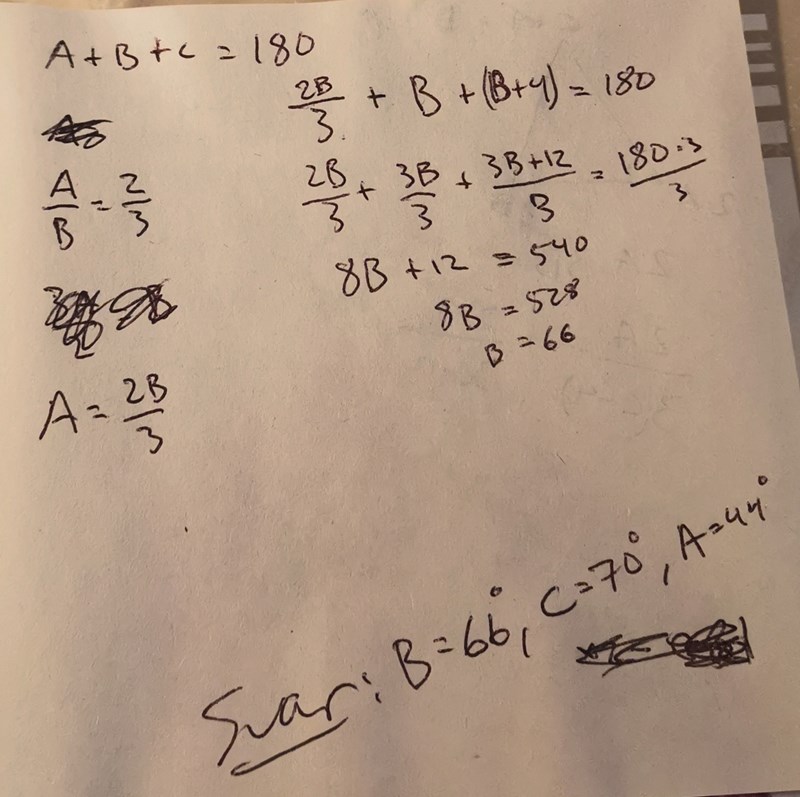 A + B + C = 180
A/B = 2/3
A = 2B/3
2B/3 + B + (B+4) = 180
2B/3 + 3B/3 + 3B+12/3 = 180·3/3
8B + 12 = 540
8B = 528
B = 66
Svar: B = 66°, C = 70°, A = 44°